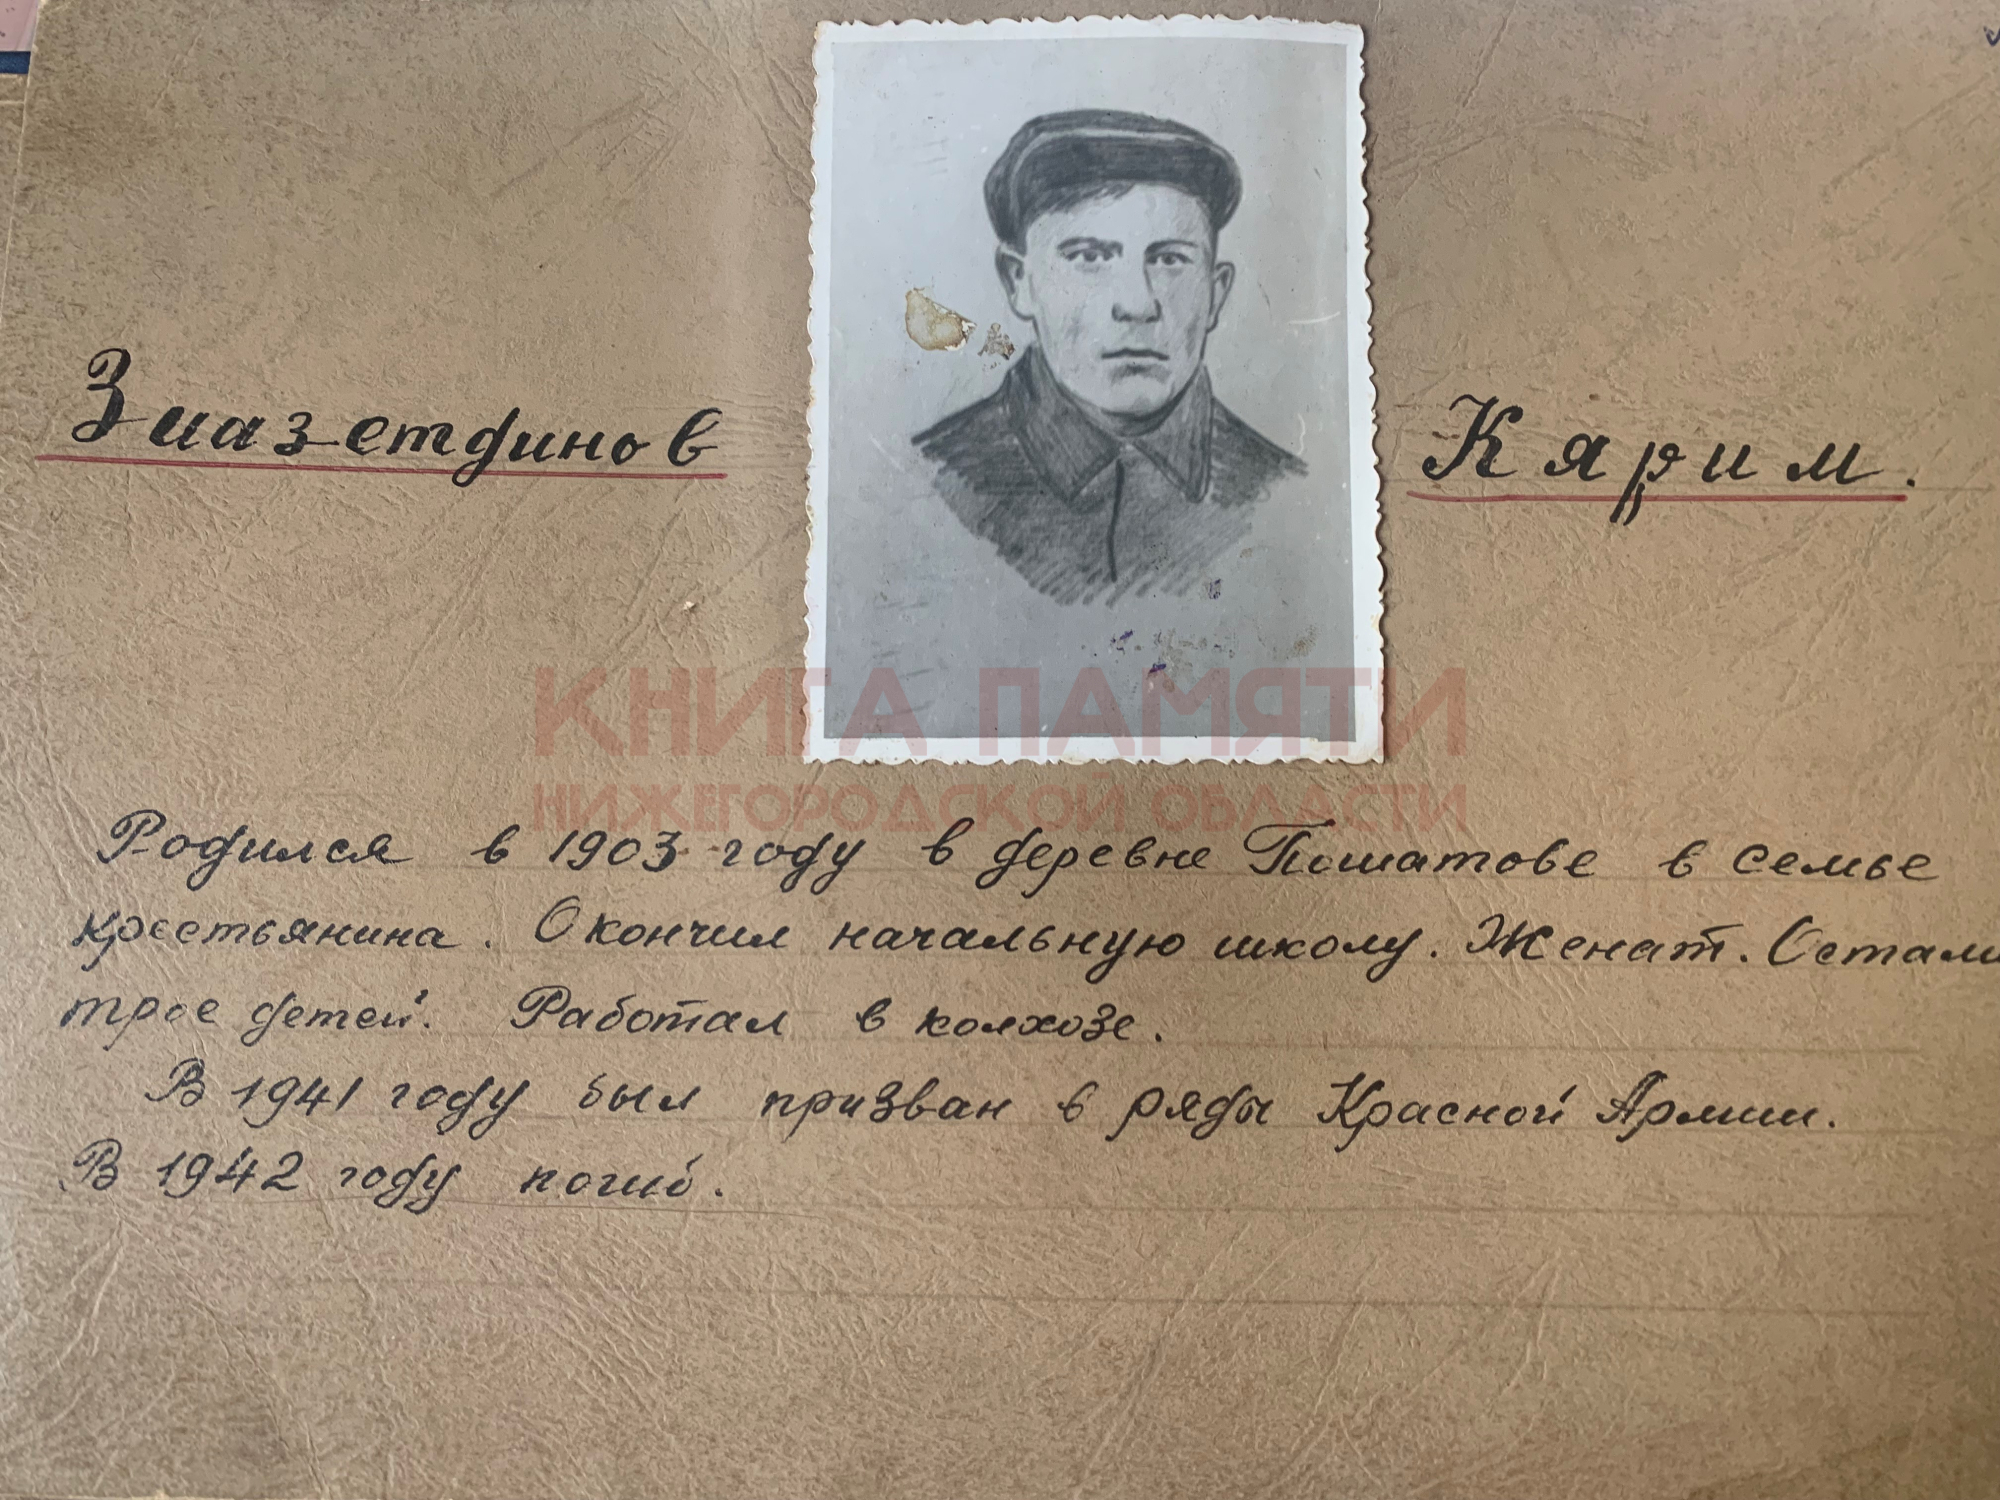 Зиазетдинов Кярим.
КНИГА ПАМЯТИ
НИЖЕГОРОДСКОЙ ОБЛАСТИ
Родился в 1903 году в деревне Пошатове в семье
крестьянина. Окончил начальную школу. Женат. Остали
трое детей. Работал в колхозе.
В 1941 году был призван в ряды Красной Армии.
В 1942 году погиб.